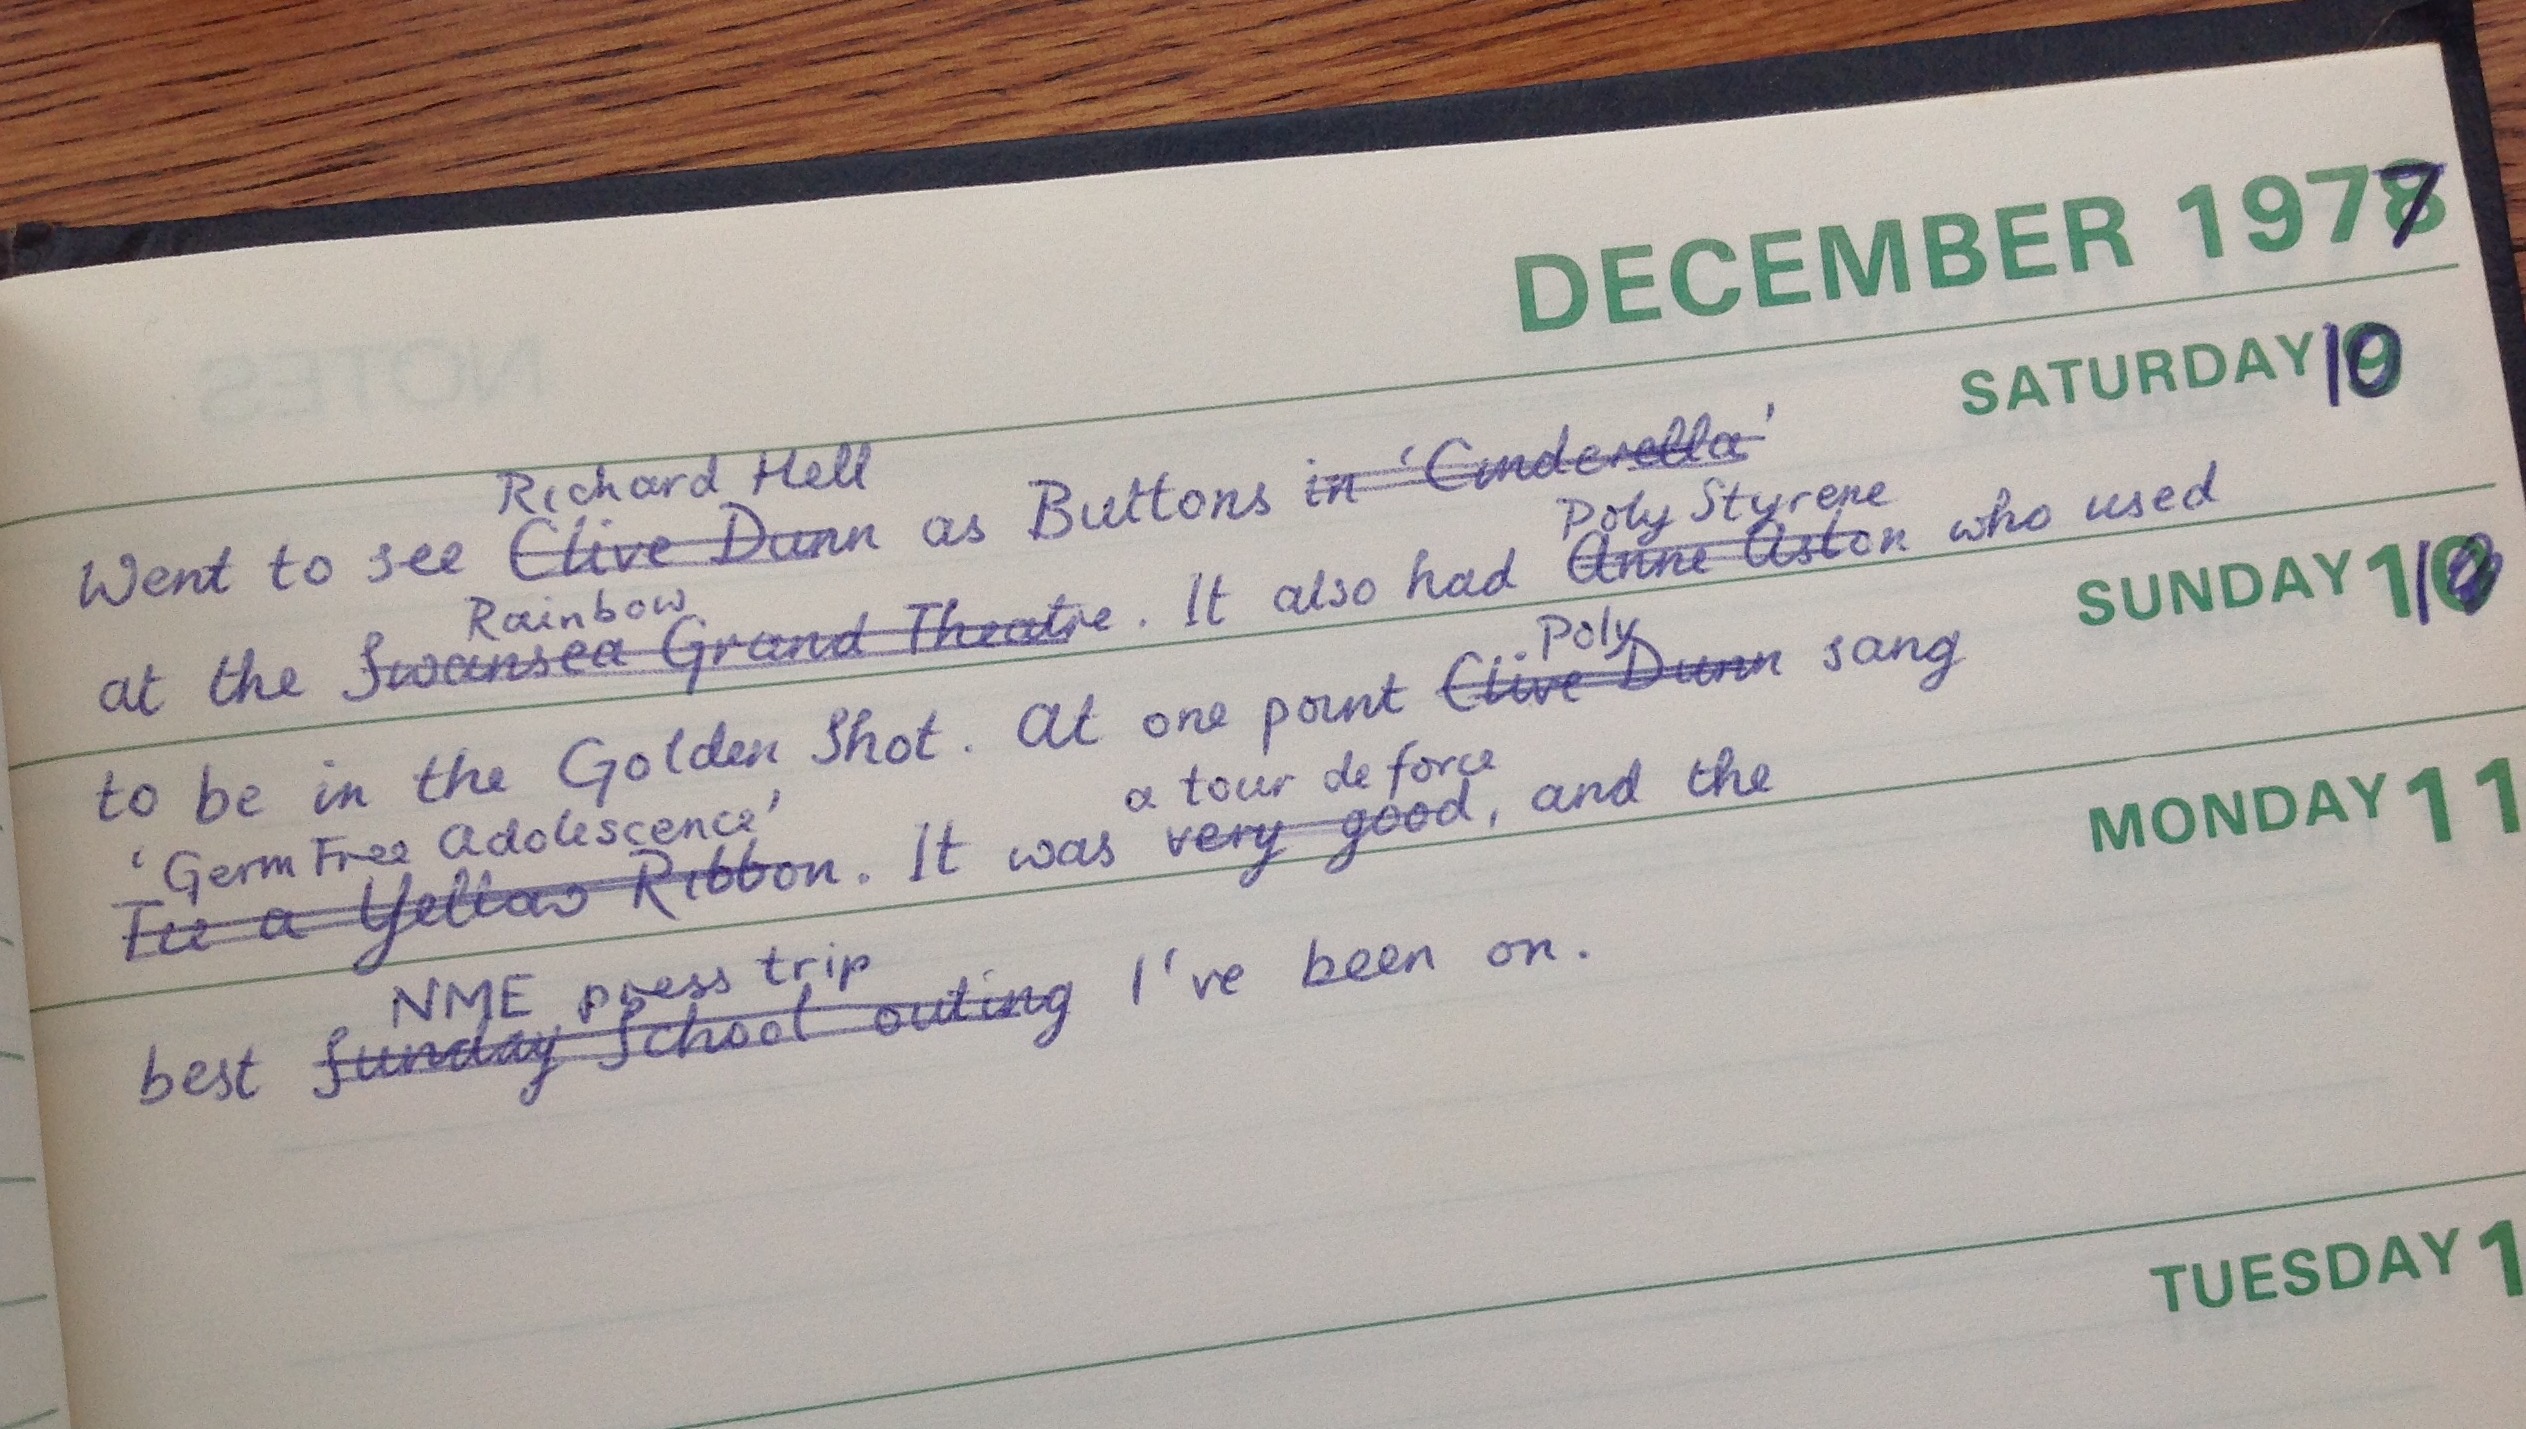 DECEMBER 1977
SATURDAY 10
Richard Hell
Went to see Clive Dunn as Buttons in 'Cinderella'
Rainbow Poly Styrene
at the Swansea Grand Theatre. It also had Anne Aston who used
SUNDAY 11
Poly
to be in the Golden Shot. At one point Clive Dunn sang
'Germ Free Adolescence' a tour de force
Tie a Yellow Ribbon. It was very good, and the
MONDAY 11
NME press trip
best Sunday School outing I've been on.
TUESDAY 1
NOTES